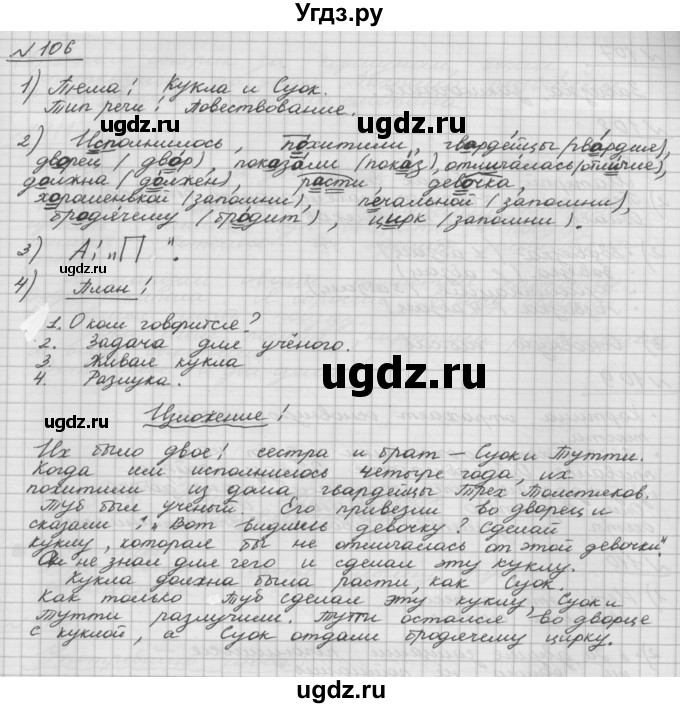 Угдз.ру
№ 106
1) Тема: Кукла и Суок.
Тип речи: Повествование.
ugdz.ru ugdz.ru
2) Исполнилось, похитили, гвардейцы (гвардия),
дворец (двор), показали (показ), отличалась (отличие),
должна (должен), расти, девочка,
хорошенькой (запомни), печальной (запомни),
бродячему (бродит), цирк (запомни).
3) А: „П".
ugdz.ru
4) План:
1. О ком говорится?
2. Задача для учёного.
3. Живая кукла
4. Разлука.
ugdz.ru
ugdz.ru
Изложение:
Их было двое: сестра и брат – Суок и Тутти.
Когда им исполнилось четыре года, их
похитили из дома гвардейцы Трёх Толстяков.
Туб был учёный. Его привезли во дворец и
сказали: „Вот видишь девочку? Сделай
куклу, которая бы не отличалась от этой девочки".
Он не знал для чего и сделал эту куклу.
Кукла должна была расти, как Суок.
Как только Туб сделал эту куклу, Суок и
Тутти разлучили. Тутти остался во дворце
с куклой, а Суок отдали бродячему цирку.
ugdz.ru ugdz.ru ugdz.ru
ugdz.ru